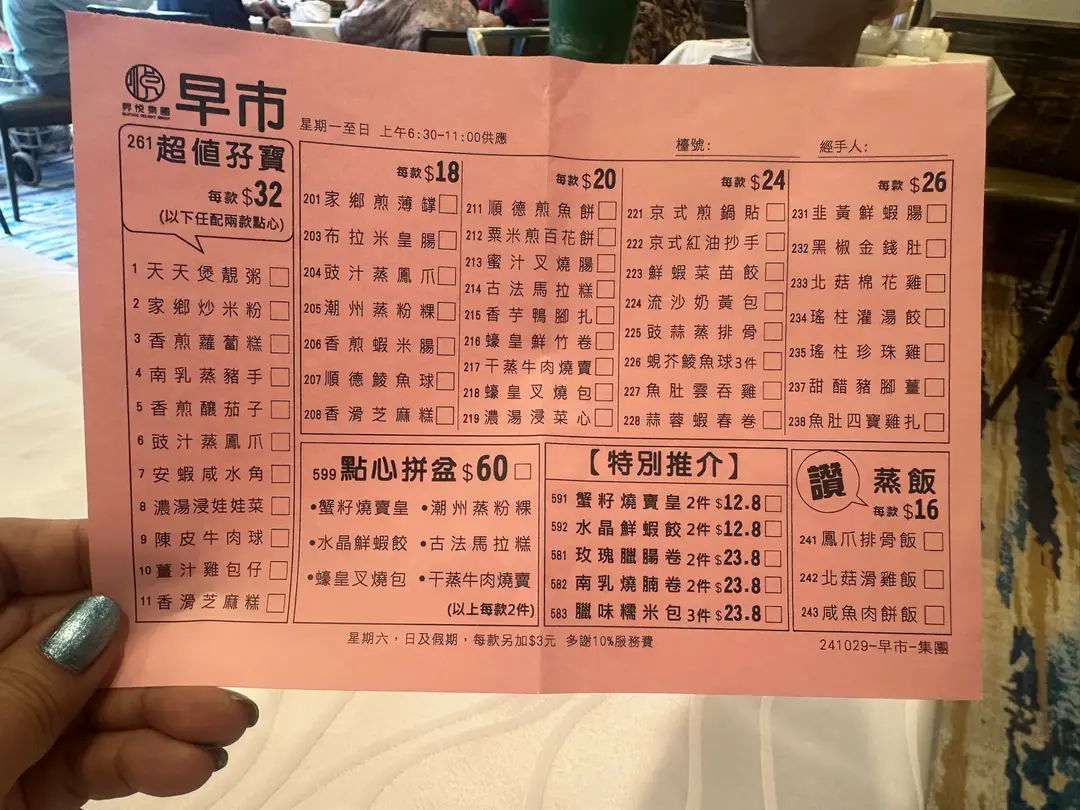 昇悅集團
早市
星期一至日 上午6:30-11:00供應
檯號:
經手人:
261 超值孖寶
每款 $32
(以下任配兩款點心)
1 天天煲靚粥
2 家鄉炒米粉
3 香煎蘿蔔糕
4 南乳蒸豬手
5 香煎釀茄子
6 豉汁蒸鳳爪
7 安蝦咸水角
8 濃湯浸娃娃菜
9 陳皮牛肉球
10 薑汁雞包仔
11 香滑芝麻糕
每款 $18
201 家鄉煎薄罉
203 布拉米皇腸
204 豉汁蒸鳳爪
205 潮州蒸粉粿
206 香煎蝦米腸
207 順德鯪魚球
208 香滑芝麻糕
每款 $20
211 順德煎魚餅
212 粟米煎百花餅
213 蜜汁叉燒腸
214 古法馬拉糕
215 香芋鴨腳扎
216 蠔皇鮮竹卷
217 干蒸牛肉燒賣
218 蠔皇叉燒包
219 濃湯浸菜心
每款 $24
221 京式煎鍋貼
222 京式紅油抄手
223 鮮蝦菜苗餃
224 流沙奶黃包
225 豉蒜蒸排骨
226 蜆芥鯪魚球3件
227 魚肚雲吞雞
228 蒜蓉蝦春卷
每款 $26
231 韭黃鮮蝦腸
232 黑椒金錢肚
233 北菇棉花雞
234 瑤柱灌湯餃
235 瑤柱珍珠雞
237 甜醋豬腳薑
238 魚肚四寶雞扎
599 點心拼盆 $60
•蟹籽燒賣皇 •潮州蒸粉粿
•水晶鮮蝦餃 •古法馬拉糕
•蠔皇叉燒包 •干蒸牛肉燒賣
(以上每款2件)
【特別推介】
591 蟹籽燒賣皇 2件 $12.8
592 水晶鮮蝦餃 2件 $12.8
581 玫瑰臘腸卷 2件 $23.8
582 南乳燒腩卷 2件 $23.8
583 臘味糯米包 3件 $23.8
讚 蒸飯
每款 $16
241 鳳爪排骨飯
242 北菇滑雞飯
243 咸魚肉餅飯
星期六，日及假期，每款另加$3元 多謝10%服務費
241029-早市-集團